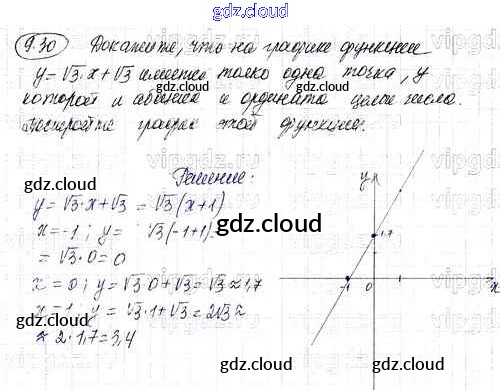 gdz.cloud
9.30 Докажите, что на графике функции
y = √3·x + √3 имеется только одна точка, у
которой и абсцисса и ордината целые числа.
Постройте график этой функции.
gdz.cloud gdz.cloud
Решение:
gdz.cloud
y = √3·x + √3 = √3(x+1)
x = -1; y = √3(-1+1)
= √3·0 = 0
gdz.cloud
x = 0; y = √3·0 + √3 = √3 ≈ 1,7
x = 1; y = √3·1 + √3 = 2√3 ≈
≈ 2·1,7 = 3,4
y
1,7
-1 0 1 x
gdz.cloud
gdz.cloud gdz.cloud
vipgdz